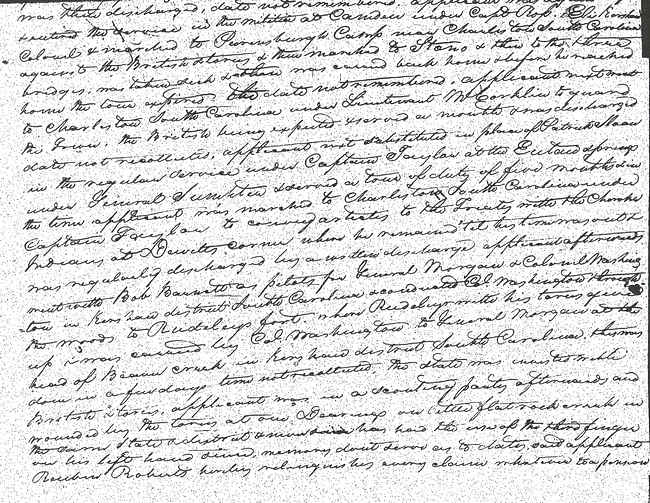 was then discharged, date not remembered. applicant was
entered the service in the militia at Camden under Capt Ross, Eli Kershaw
Colonel & marched to Purrysburgh Camp near Charleston South Carolina
against the British & tories & then marched to Stono & then to the three
bridges, was taken sick & was carried back home & before he reached
home the tour expired the date not remembered, applicant next went
to Charleston South Carolina under Lieutenant McCorkle to guard
the Town, the British being expected & served a month & was discharged
date not recollected, applicant next substituted in place of Patrick
in the regular service under Captain Taylor at the Eutaw Springs
under General Sumpter & served a tour of duty of five months in
the time applicant was marched to Charleston South Carolina under
Captain Taylor to convey articles to the Treaty with the Cherokee
Indians at Dewitts corner where he remained til his time was out &
was regularly discharged by a written discharge applicant afterwards
went with Bob Barnett as pilots for General Morgan & Colonel Washing
ton in Kershaw district South Carolina & conducted Col Washington through
the woods to Rudgleys fort. when Rudgley with his tories gave
up & was carried by Col. Washington to General Morgan at the
head of Beaver creek in Kershaw district South Carolina, this was
done in a few days time not recollected, the State was invested with
British & tories, applicant was in a scouting party afterwards and
wounded by the tories at one Dearings on little flat rock creek in
the same State & district & never has had the use of the third finger
on his left hand since, memory dont serve as to dates, said applicant
Reuben Roberts hereby relinquishes every claim whatever to a pension